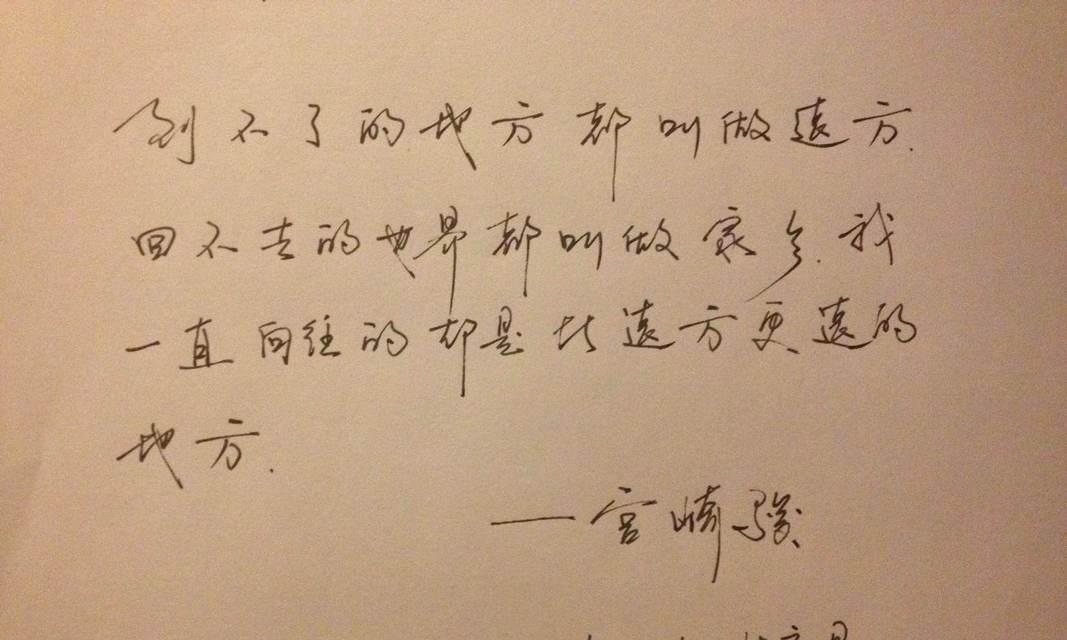 到不了的地方都叫做遠方.
回不去的世界都叫做家乡.我
一直向往的却是比遠方更遠的
地方.
—宫崎骏